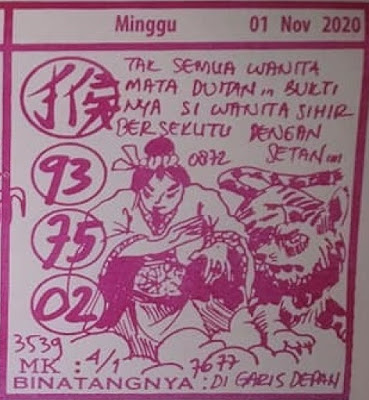 Minggu 01 Nov 2020
TAK SEMUA WANITA
猴 MATA DUITAN BUKTI
NYA SI WANITA SIHIR
BERSEKUTU DENGAN
0872 SETAN
93
75
02
3539
MK : 4/1 7677
BINATANGNYA : DI GARIS DEPAN